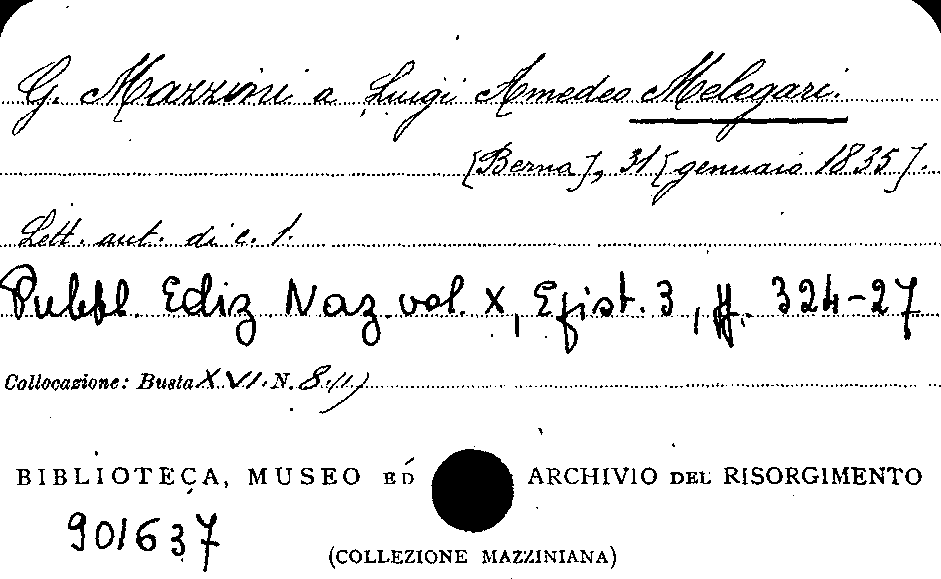 G. Mazzini a Luigi Amedeo Melegari.
[Berna], 31 [gennaio 1835].
Lett. aut. di c. 1.
Pubbl. Ediz Naz. vol. X, Epist. 3, pp. 324-27
Collocazione: Busta XVI. N. 8
BIBLIOTECA, MUSEO ED ARCHIVIO DEL RISORGIMENTO
901637
(COLLEZIONE MAZZINIANA)